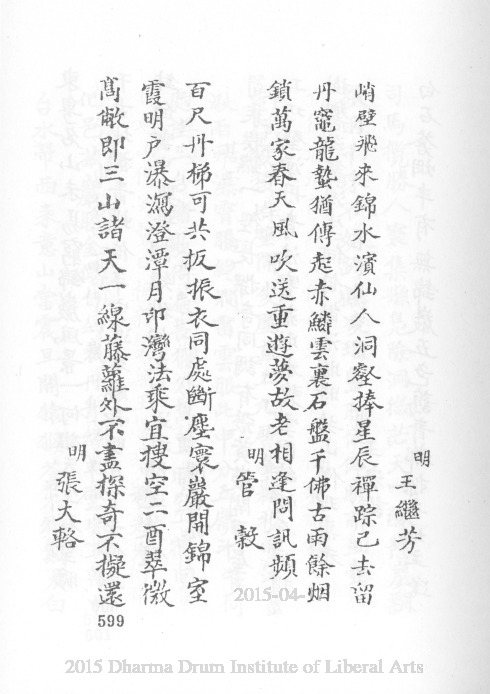 明 王繼芳
峭壁飛來錦水濱仙人洞壑捧星辰禪踪已去留
丹竈龍蟄猶傳起赤鱗雲裏石盤千佛古雨餘烟
鎖萬家春天風吹送重遊夢故老相逢問訊頻
明 管轂
百尺丹梯可共扳振衣同處斷塵寰巖開錦室
霞明戶瀑瀉澄潭月印灣法乘宜搜空二酉翠微
髙敞即三山諸天一線藤蘿外不盡探奇不擬還
明 張大輅
599
2015-04-
2015 Dharma Drum Institute of Liberal Arts